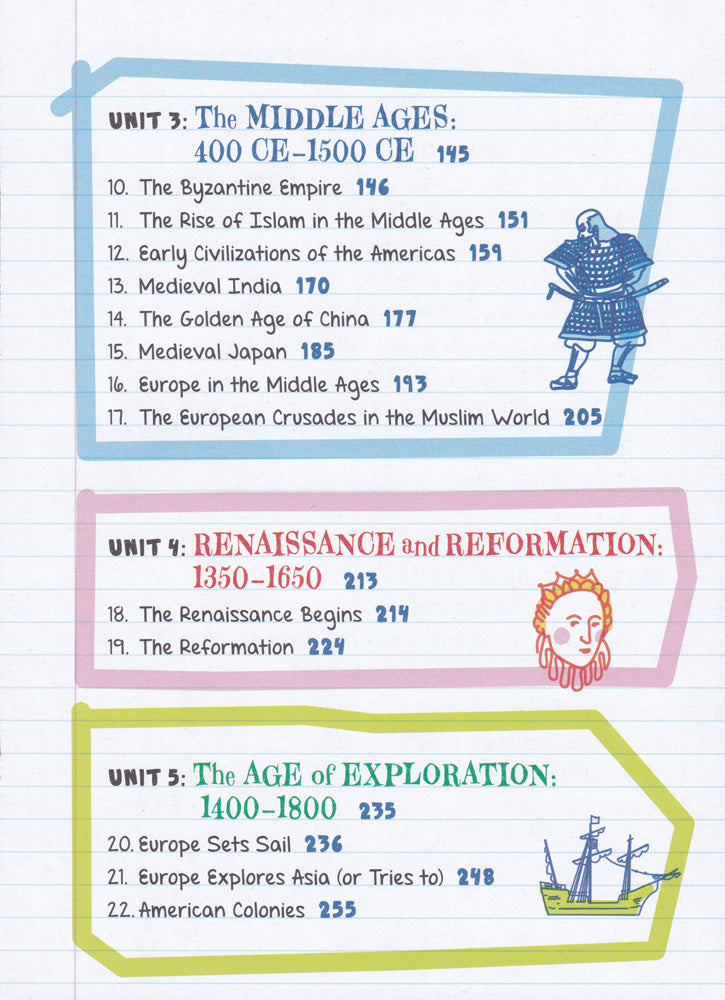 UNIT 3: The MIDDLE AGES:
400 CE–1500 CE 145
10. The Byzantine Empire 146
11. The Rise of Islam in the Middle Ages 151
12. Early Civilizations of the Americas 159
13. Medieval India 170
14. The Golden Age of China 177
15. Medieval Japan 185
16. Europe in the Middle Ages 193
17. The European Crusades in the Muslim World 205
UNIT 4: RENAISSANCE and REFORMATION:
1350–1650 213
18. The Renaissance Begins 214
19. The Reformation 224
UNIT 5: The AGE of EXPLORATION:
1400–1800 235
20. Europe Sets Sail 236
21. Europe Explores Asia (or Tries to) 248
22. American Colonies 255